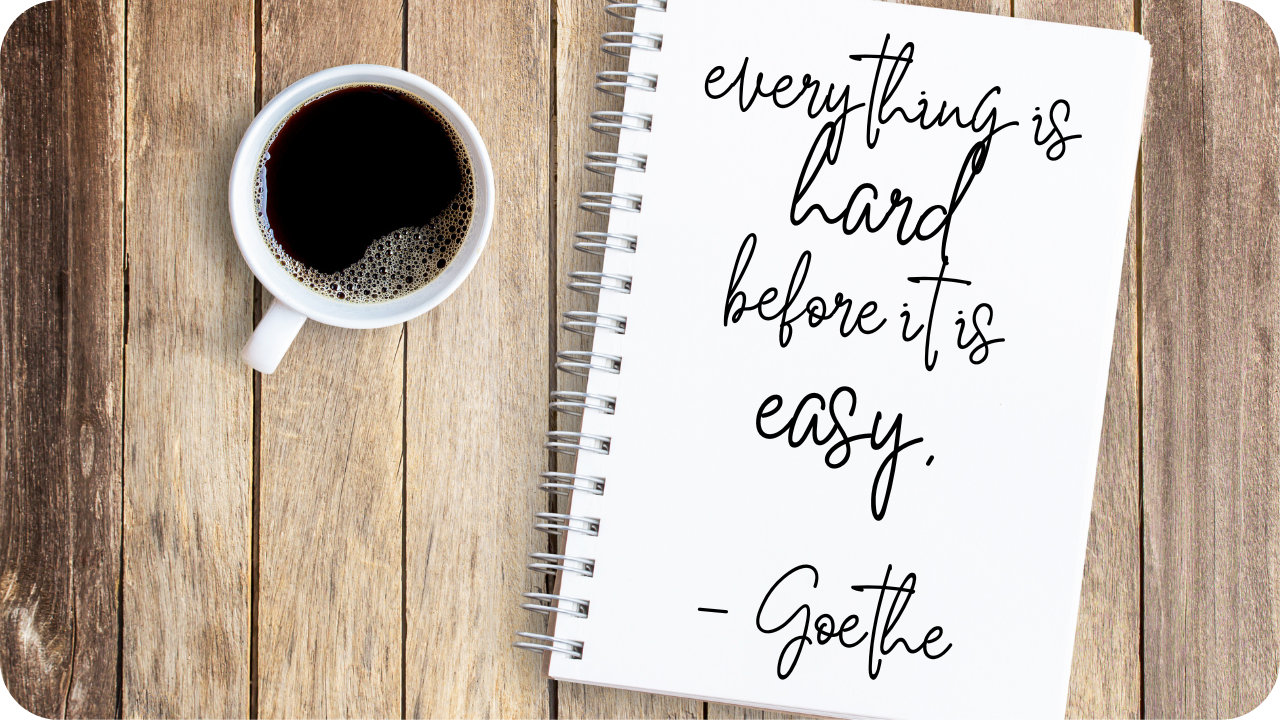 everything is
hard
before it is
easy.
- Goethe